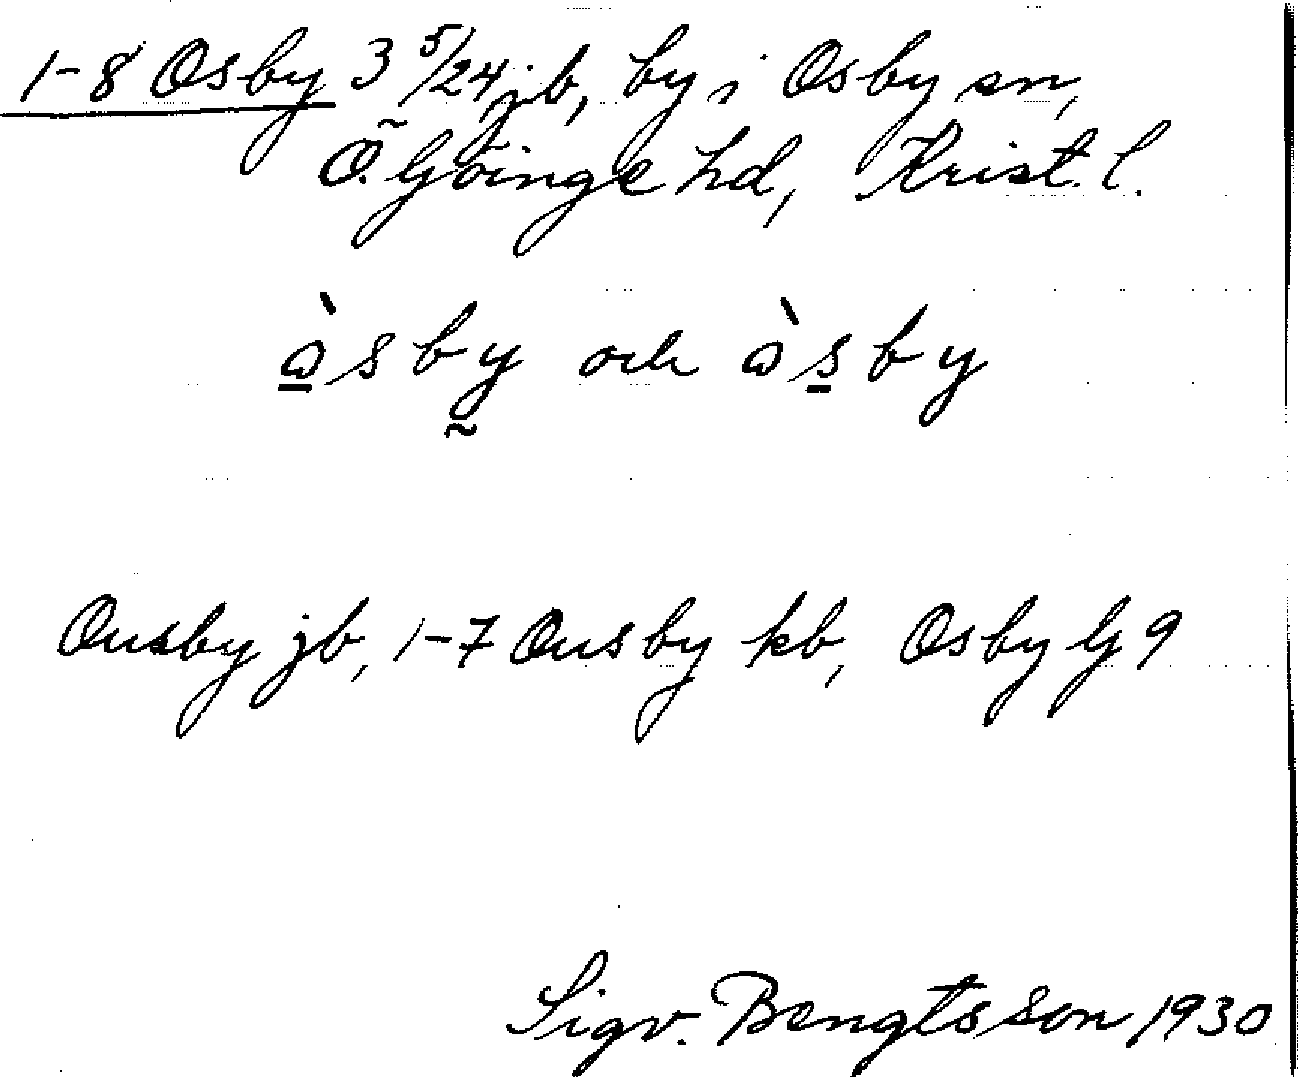 1-8 Osby 3 5/24 jb, by i Osby sn,
Ö. Göinge hd, Krist. l.
òsby och òsby
Ousby jb, 1-7 Ousby kb, Osby G 9
Sigv. Bengtsson 1930